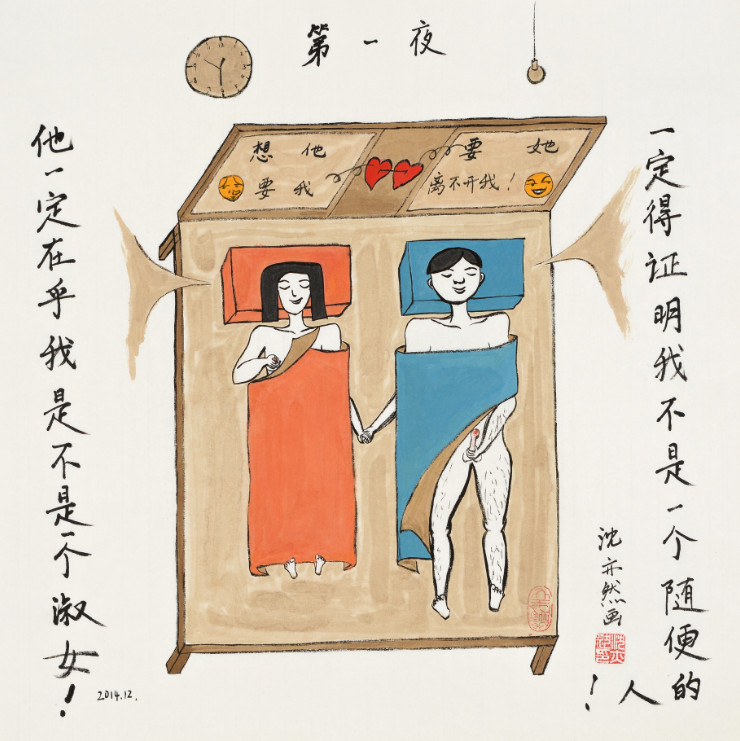 第一夜
想他
要我
要她
离不开我！
他一定在乎我是不是一个淑女！
一定得证明我不是一个随便的人！
沈亦然画
2014.12.